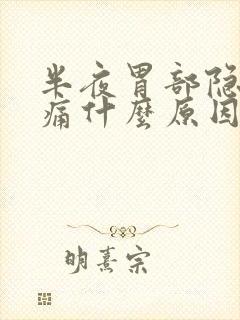 半夜胃部隐
痛什麽原因
明熹宗